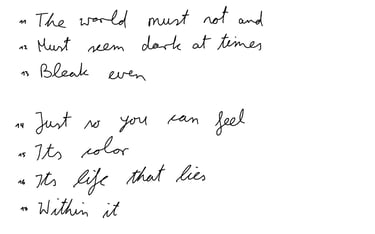 11 The world must not and
12 Must seem dark at times
13 Bleak even
14 Just so you can feel
15 Its color
16 Its life that lies
Within it